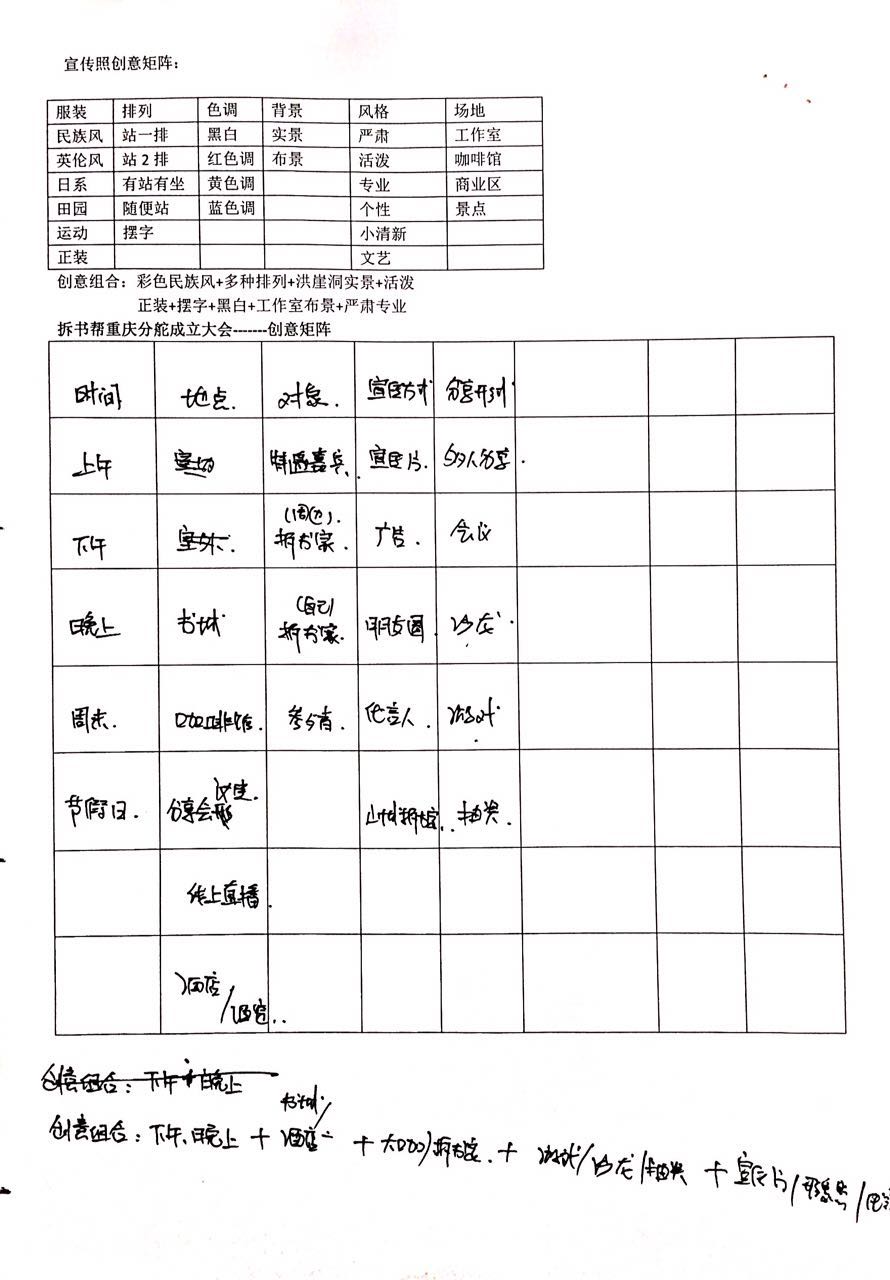 宣传照创意矩阵：
服装 排列 色调 背景 风格 场地
民族风 站一排 黑白 实景 严肃 工作室
英伦风 站 2 排 红色调 布景 活泼 咖啡馆
日系 有站有坐 黄色调 专业 商业区
田园 随便站 蓝色调 个性 景点
运动 摆字 小清新
正装 文艺
创意组合：彩色民族风+多种排列+洪崖洞实景+活泼
正装+摆字+黑白+工作室布景+严肃专业
拆书帮重庆分舵成立大会-------创意矩阵
时间 地点. 对象. 宣传方式 分享形式
上午 室内 特邀嘉宾. 宣传片. 多人分享.
下午 室外. (周边). 拆书家. 广告. 会议
晚上 书城 (自己) 拆书家. 朋友圈 沙龙.
周末. 咖啡馆. 参会者. 代言人. 游戏.
节假日. 分享会 拆书家.. 抽奖.
线上直播.
酒店/酒窖..
创意组合：下午+晚上
书城/
创意组合：下午、晚上 + 酒店 + 大咖/拆书家. + 游戏/沙龙/抽奖 + 宣传片/